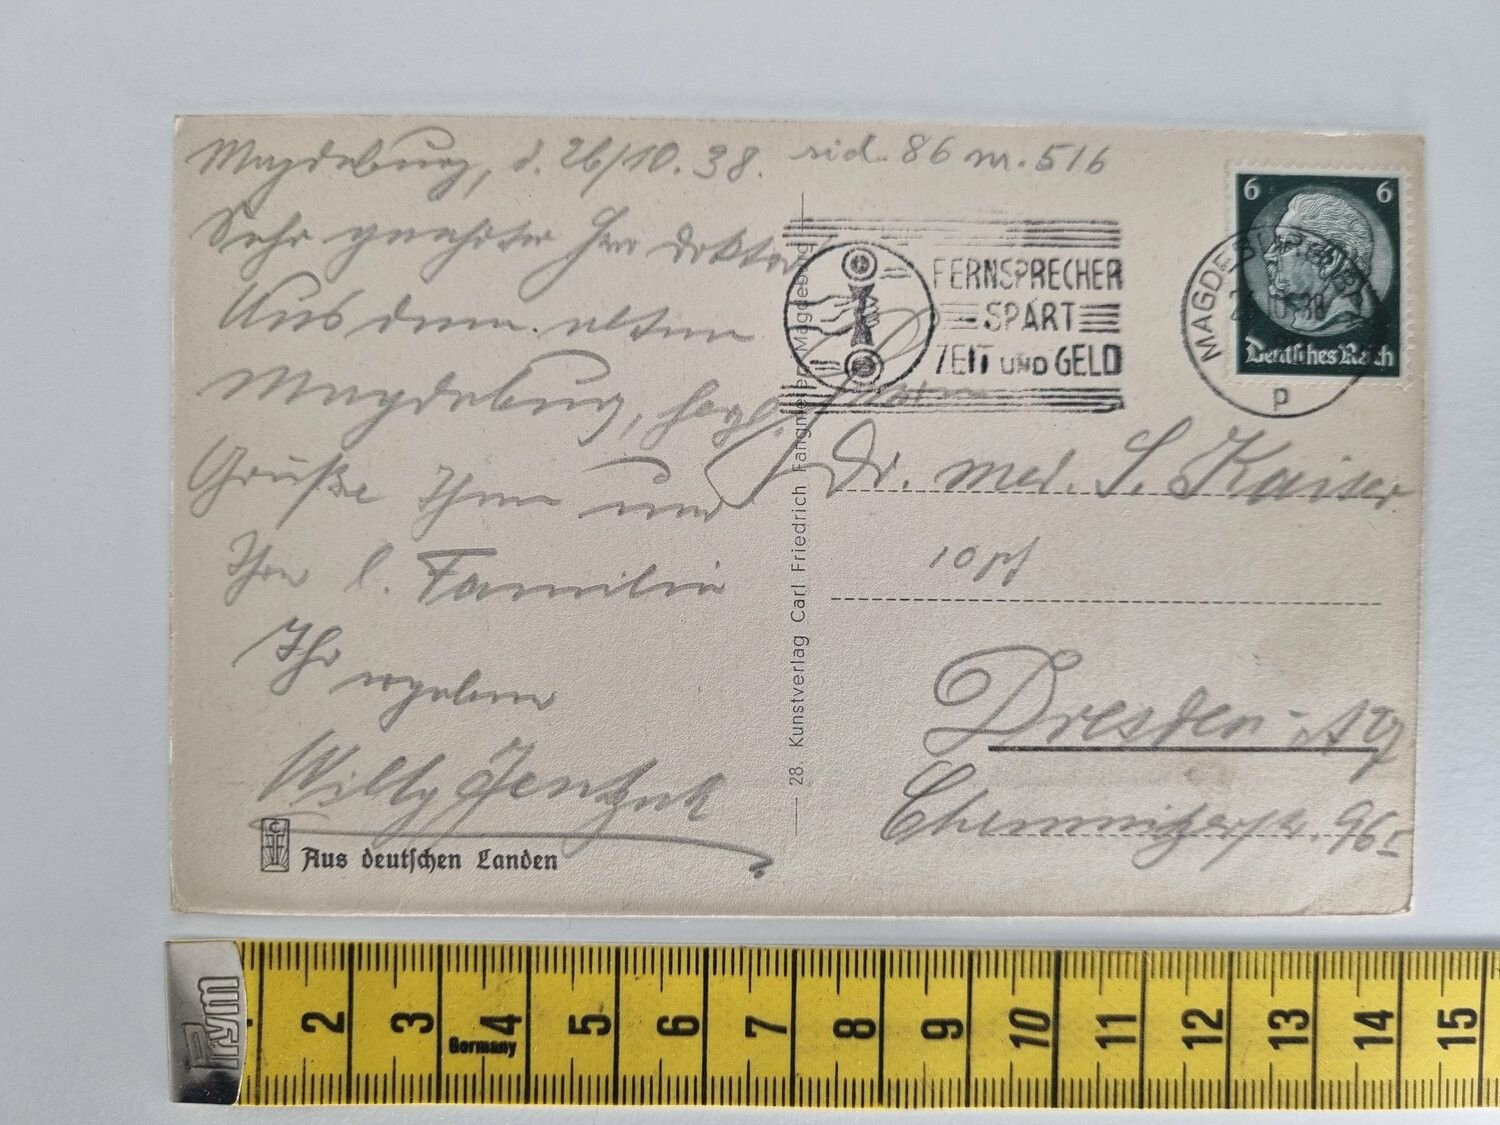 Magdeburg, d. 26/10.38.
rid. 86 nr. 516
Sehr geehrter Herr Doktor
Aus dem alten
Magdeburg, herzl.
Grüße Ihnen und
Ihrer l. Familie
Ihr
ergebener
Willy
Aus deutschen Landen
28. Kunstverlag Carl Friedrich Fangmeier, Magdeburg
FERNSPRECHER
SPART
ZEIT UND GELD
MAGDEBURG
38
p
6 6
Deutsches Reich
Dr. med. S. Kaiser
10 pf
Dresden-A 29
Chemnitzerstr. 96
Prym
2 3 4 5 6 7 8 9 10 11 12 13 14 15
Germany